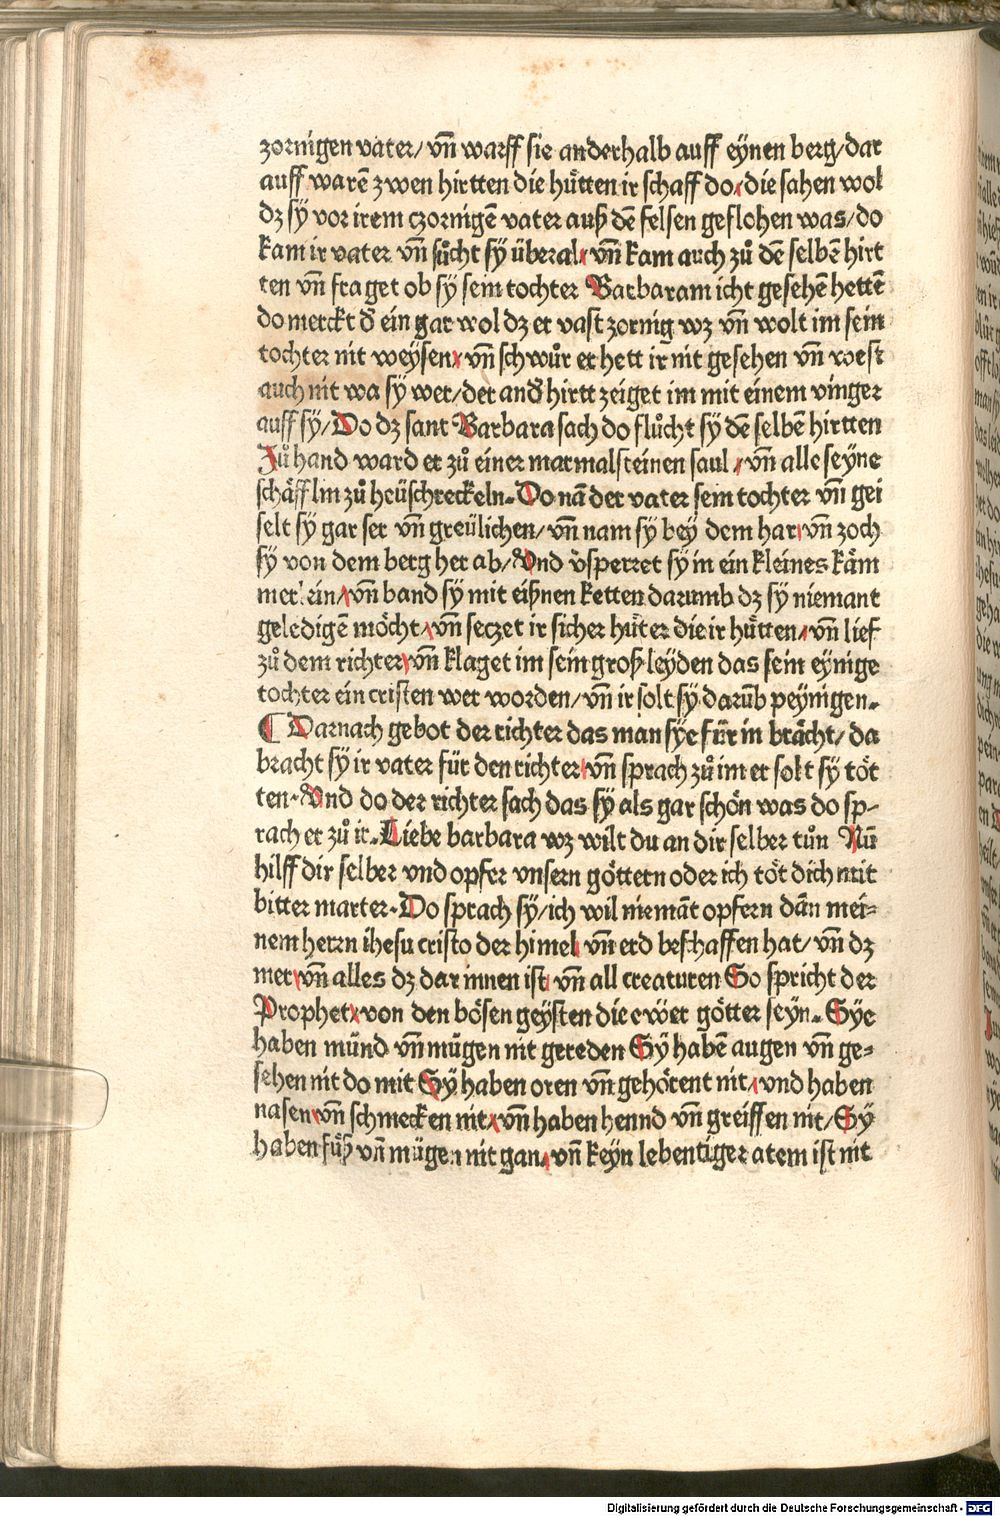 zornigen vater/ vn̄ warff sie anderhalb auff eynen berg/ dar
auff warē zwen hirtten die huͤtten ir schaff do/ die sahen wol
dz sÿ vor irem czornigē vater auß dē felsen geflohen was/ do
kam ir vater vn̄ suͦcht sÿ überal/ vn̄ kam auch zuͦ dē selbē hirt
ten vn̄ fraget ob sÿ sein tochter Barbaram icht gesehē hettē
do merckt d̕ ein gar wol dz er vast zornig wz vn̄ wolt im sein
tochter nit weysen/ vn̄ schwuͦr er hett ir nit gesehen vn̄ west
auch nit wa sÿ wer/ der and̕ hirtt zeiget im mit einem vinger
auff sÿ/ Do dz sant Barbara sach do fluͦcht sÿ dē selbē hirtten
Zuͦ hand ward er zuͦ einer marmalsteinen saul/ vn̄ alle seyne
schaͤfflin zuͦ heüschreckeln. Do nā der vater sein tochter vn̄ gei
selt sÿ gar ser vn̄ greülichen/ vn̄ nam sÿ bey dem har/ vn̄ zoch
sÿ von dem berg her ab/ Und v̓sperret sÿ in ein kleines kaͤm
merlein/ vn̄ band sÿ mit eißnen ketten darumb dz sÿ niemant
geledigē moͤcht/ vn̄ seczet ir sicher huͤter die ir huͤtten/ vn̄ lief
zuͦ dem richter/ vn̄ klaget im sein groß leyden das sein eynige
tochter ein cristen wer worden/ vn̄ ir solt sÿ darūb peynigen.
¶ Darnach gebot der richter das man sye für in braͤcht/ da
bracht sÿ ir vater für den richter/ vn̄ sprach zuͦ im er solt sÿ toͤt
ten. Und do der richter sach das sÿ als gar schoͤn was do sp-
rach er zuͦ ir. Liebe barbara wz wilt du an dir selber tuͦn Nū
hilff dir selber vnd opfer vnsern goͤttern oder ich toͤt dich mit
bitter marter. Do sprach sÿ/ ich wil niemāt opfern dān mei=
nem herrn ihesu cristo der himel vn̄ erd beschaffen hat/ vn̄ dz
mer/ vn̄ alles dz dar innen ist/ vn̄ all creaturen So spricht der
Prophet/ von den boͤsen geysten die ewer goͤtter seyn. Sÿe
haben münd vn̄ mügen nit gereden Sÿ habē augen vn̄ ge=
sehen nit do mit Sÿ haben oren vn̄ gehoͤrent nit/ vnd haben
nasen/ vn̄ schmecken nit/ vn̄ haben hennd vn̄ greiffen nit/ Sÿ
haben fuͤß vn̄ mügen nit gan/ vn̄ keyn lebentiger atem ist nit
Digitalisierung gefördert durch die Deutsche Forschungsgemeinschaft - DFG